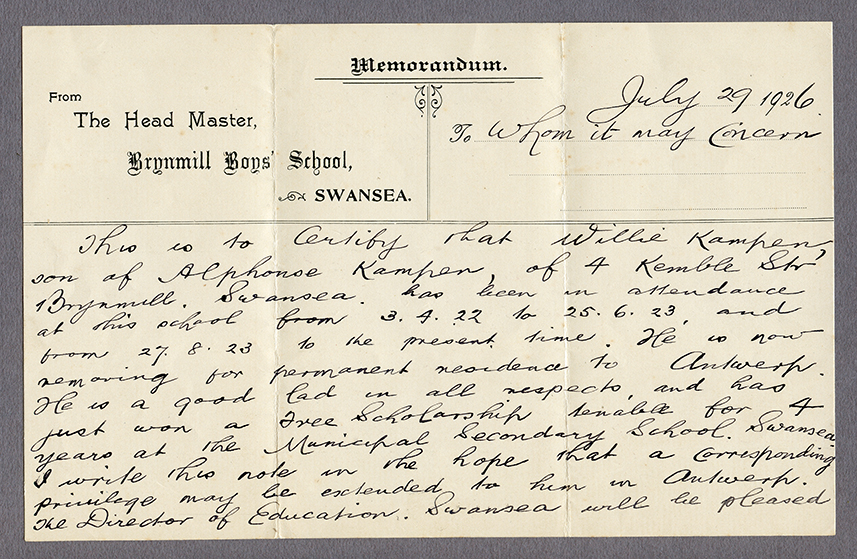 Memorandum.
From
The Head Master,
Brynmill Boys' School,
SWANSEA.
July 29 1926
To Whom it may Concern
This is to Certify that Willie Kampen,
son of Alphonse Kampen, of 4 Kemble Str
Brynmill. Swansea. has been in attendance
at this school from 3.4.22 to 25.6.23 and
from 27.8.23 to the present time. He is now
removing for permanent residence to Antwerp.
He is a good lad in all respects and has
just won a Free Scholarship tenable for 4
years at the Municipal Secondary School. Swansea.
I write this note in the hope that a corresponding
privilege may be extended to him in Antwerp.
The Director of Education. Swansea will be pleased